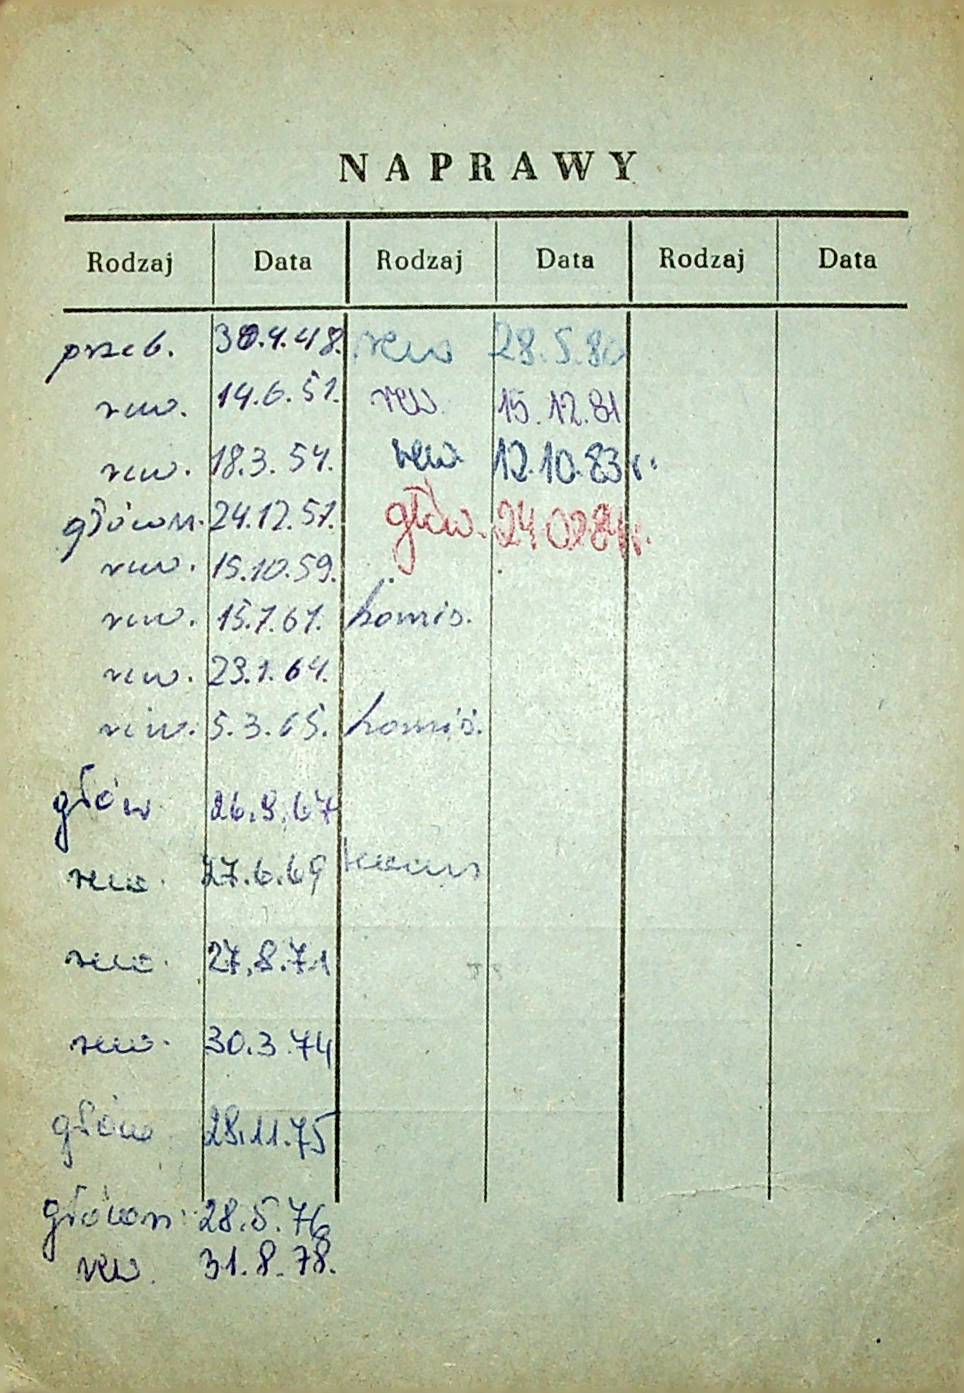 NAPRAWY
Rodzaj Data Rodzaj Data Rodzaj Data
przeb. 30.4.48. rew 28.5.80
rew. 14.6.51. rew. 15.12.81
rew. 18.3.54. rew 12.10.83r.
główn. 24.12.57. głów. 24.02.84r.
rew. 15.10.59.
rew. 15.7.61. komis.
rew. 23.1.64.
rew. 5.3.65. komis.
głów 26.9.67
rew. 27.6.69
rew. 27.8.71
rew. 30.3.74
głów 28.11.75
główn. 28.5.76
rew. 31.8.78.